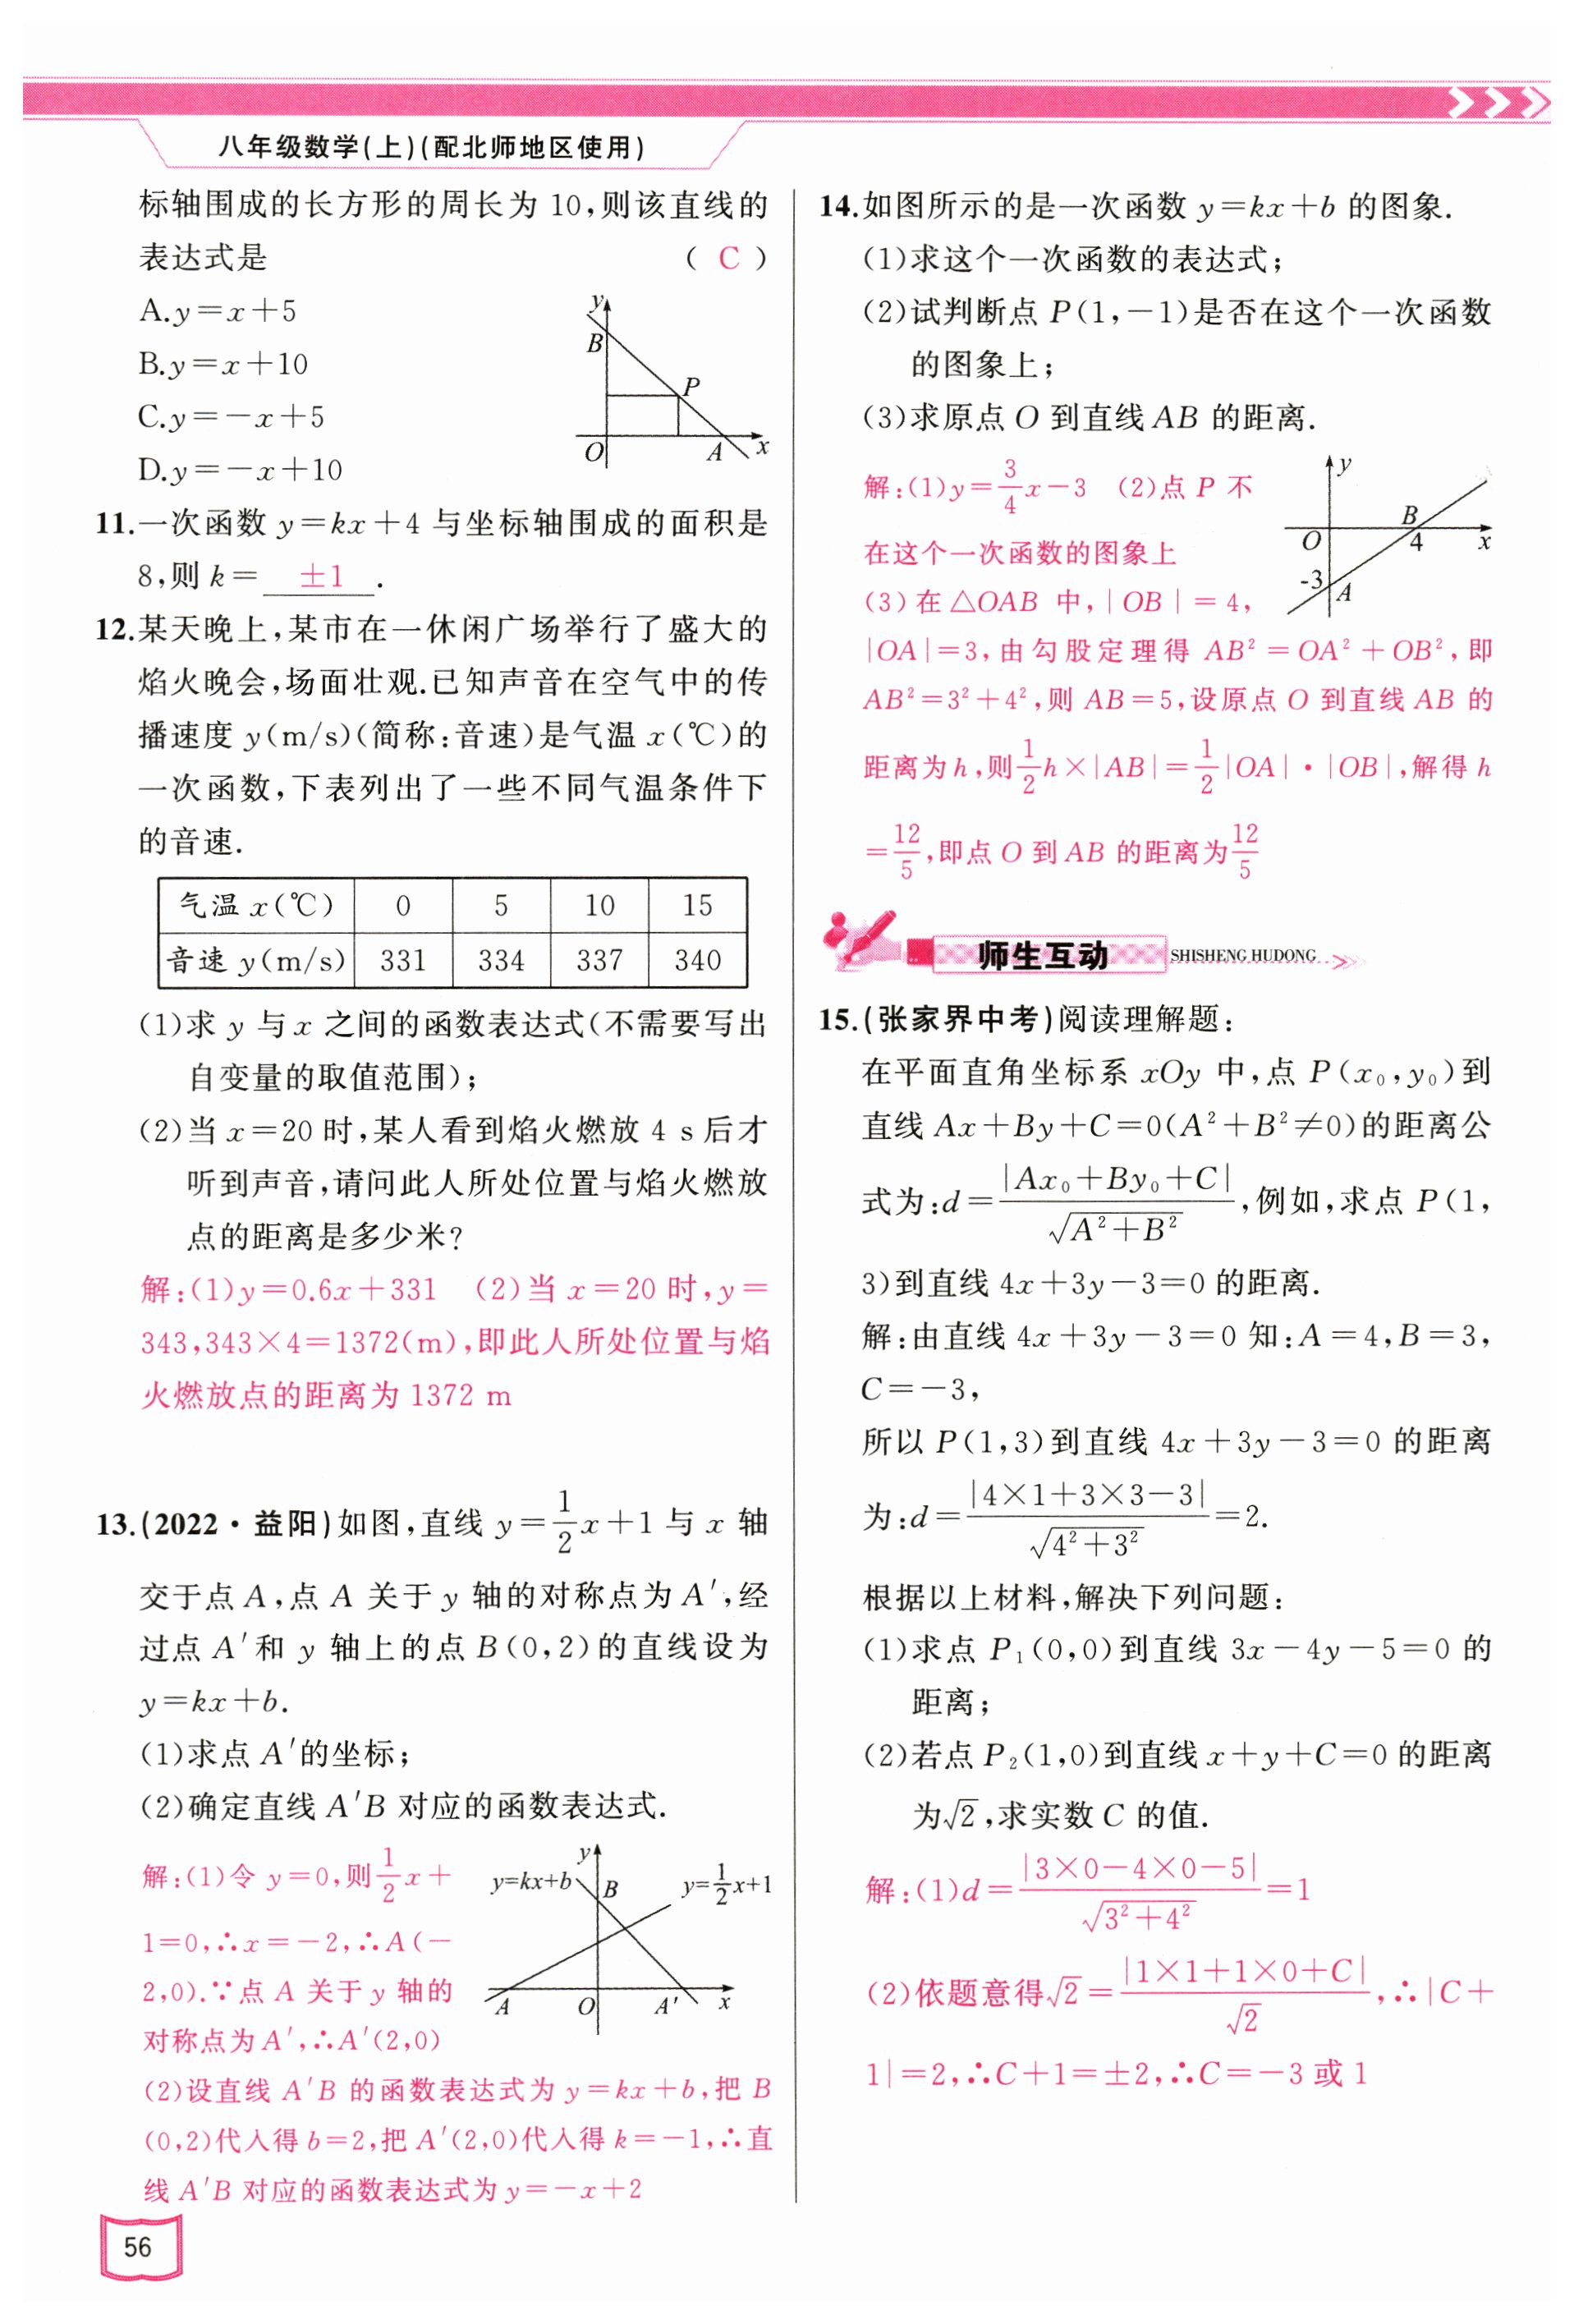 八年级数学(上)(配北师地区使用)
标轴围成的长方形的周长为 10,则该直线的
表达式是 ( C )
A.y=x+5
B.y=x+10
C.y=-x+5
D.y=-x+10
y
B
P
O
A
x
11.一次函数 y=kx+4 与坐标轴围成的面积是
8,则 k= ±1 .
12.某天晚上,某市在一休闲广场举行了盛大的
焰火晚会,场面壮观.已知声音在空气中的传
播速度 y(m/s)(简称:音速)是气温 x(℃)的
一次函数,下表列出了一些不同气温条件下
的音速.
气温 x(℃) 0 5 10 15
音速 y(m/s) 331 334 337 340
(1)求 y 与 x 之间的函数表达式(不需要写出
自变量的取值范围);
(2)当 x=20 时,某人看到焰火燃放 4 s 后才
听到声音,请问此人所处位置与焰火燃放
点的距离是多少米?
解:(1)y=0.6x+331 (2)当 x=20 时,y=
343,343×4=1372(m),即此人所处位置与焰
火燃放点的距离为 1372 m
13.(2022·益阳)如图,直线 y=1/2x+1 与 x 轴
交于点 A,点 A 关于 y 轴的对称点为 A′,经
过点 A′和 y 轴上的点 B(0,2)的直线设为
y=kx+b.
(1)求点 A′的坐标;
(2)确定直线 A′B 对应的函数表达式.
解:(1)令 y=0,则1/2x+
1=0,∴x=-2,∴A(-
2,0).∵点 A 关于 y 轴的
对称点为 A′,∴A′(2,0)
y
y=kx+b
B
y=1/2x+1
A
O
A′
x
(2)设直线 A′B 的函数表达式为 y=kx+b,把 B
(0,2)代入得 b=2,把 A′(2,0)代入得 k=-1,∴直
线 A′B 对应的函数表达式为 y=-x+2
56
14.如图所示的是一次函数 y=kx+b 的图象.
(1)求这个一次函数的表达式;
(2)试判断点 P(1,-1)是否在这个一次函数
的图象上;
(3)求原点 O 到直线 AB 的距离.
解:(1)y=3/4x-3 (2)点 P 不
在这个一次函数的图象上
(3)在△OAB 中,|OB|=4,
y
B
O
4
x
-3
A
|OA|=3,由勾股定理得 AB²=OA²+OB²,即
AB²=3²+4²,则 AB=5,设原点 O 到直线 AB 的
距离为 h,则1/2h×|AB|=1/2|OA|·|OB|,解得 h
=12/5,即点 O 到 AB 的距离为12/5
师生互动 SHISHENG HUDONG
15.(张家界中考)阅读理解题:
在平面直角坐标系 xOy 中,点 P(x₀,y₀)到
直线 Ax+By+C=0(A²+B²≠0)的距离公
式为:d=|Ax₀+By₀+C|/√(A²+B²),例如,求点 P(1,
3)到直线 4x+3y-3=0 的距离.
解:由直线 4x+3y-3=0 知:A=4,B=3,
C=-3,
所以 P(1,3)到直线 4x+3y-3=0 的距离
为:d=|4×1+3×3-3|/√(4²+3²)=2.
根据以上材料,解决下列问题:
(1)求点 P₁(0,0)到直线 3x-4y-5=0 的
距离;
(2)若点 P₂(1,0)到直线 x+y+C=0 的距离
为√2,求实数 C 的值.
解:(1)d=|3×0-4×0-5|/√(3²+4²)=1
(2)依题意得√2=|1×1+1×0+C|/√2,∴|C+
1|=2,∴C+1=±2,∴C=-3 或 1